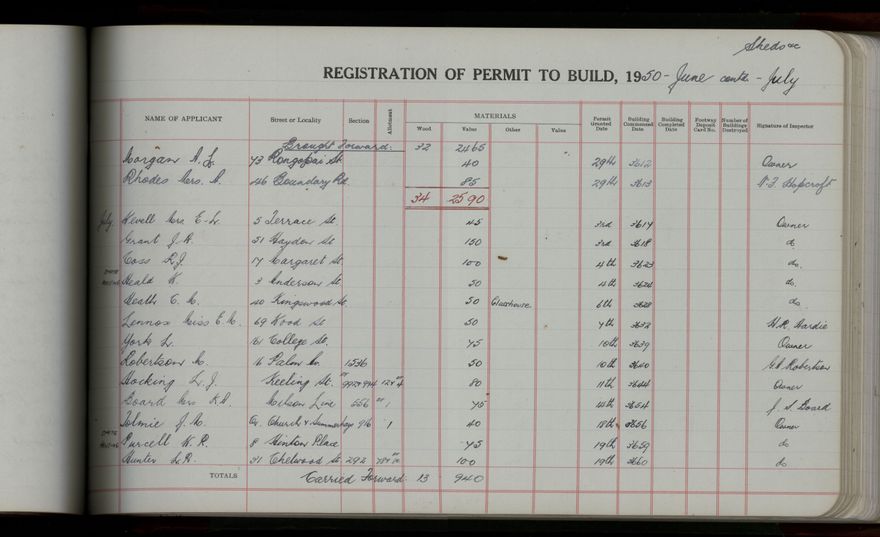 Sheds etc
REGISTRATION OF PERMIT TO BUILD, 1950 - June contd - July
NAME OF APPLICANT Street or Locality Section Allotment MATERIALS Wood Value Other Value Permit Granted Date Building Commenced Date Building Completed Date Footway Deposit Card No. Number of Buildings Destroyed Signature of Inspector
Brought Forward. 32 2465
Morgan A. L. 73 Rongopai St. 40 29th 3612 Owner
Rhodes Mrs. A. 46 Boundary Rd 85 29th 3613 Hopcroft
34 2590
July Kevell Mrs E. L. 5 Terrace St. 45 3rd 3617 Owner
Grant J. R. 51 Haydon St 150 3rd 3618 do
Coss R. J. 17 Margaret St 100 4th 3623 do.
Heald K. 3 Anderson St 50 4th 3624 do.
Heath C. M. 40 Kingswood St. 50 Glasshouse 6th 3628 do
Lennox Miss E. M. 69 Wood St 50 7th 3632 H.R. Hardie
York L. 161 College St. 75 10th 3639 Owner
Robertson M. 16 Palm Av. 1536 50 10th 3640 Robertson
Hocking L. J. Keeling St. 80 11th 3644 Owner
Board Mrs K. D. Milson Line 556 pt 1 75 14th 3654 J. S. Board
Tolmie J. M. Cr. Church & Summerhays 916 1 40 18th 3656 Owner
Purcell W. R. 8 Hinton Place 75 19th 3659 do
Hunter L. R. 31 Chelwood St. 292 100 19th 3660 do
TOTALS Carried Forward 13 940